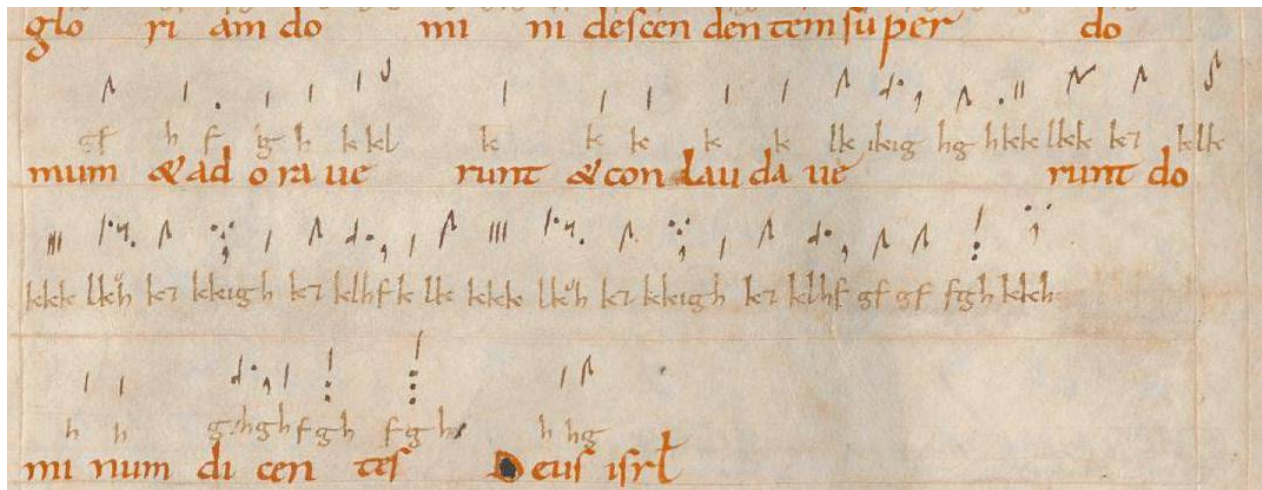 glo ri am do mi ni deſcen den tem ſu per do
gf h f g h k kl k k k k k lk ikig hg hkk lkk ki klk
mum & ad o ra ue runt & con lau da ue runt do
kkk lkh ki kkigh ki klhf k lk kkkk lkh ki kkigh ki klhf gf gf fgh kkh
h h ghgh fgh fgh h hg
mi num di cen teſ Deuſ iſrł